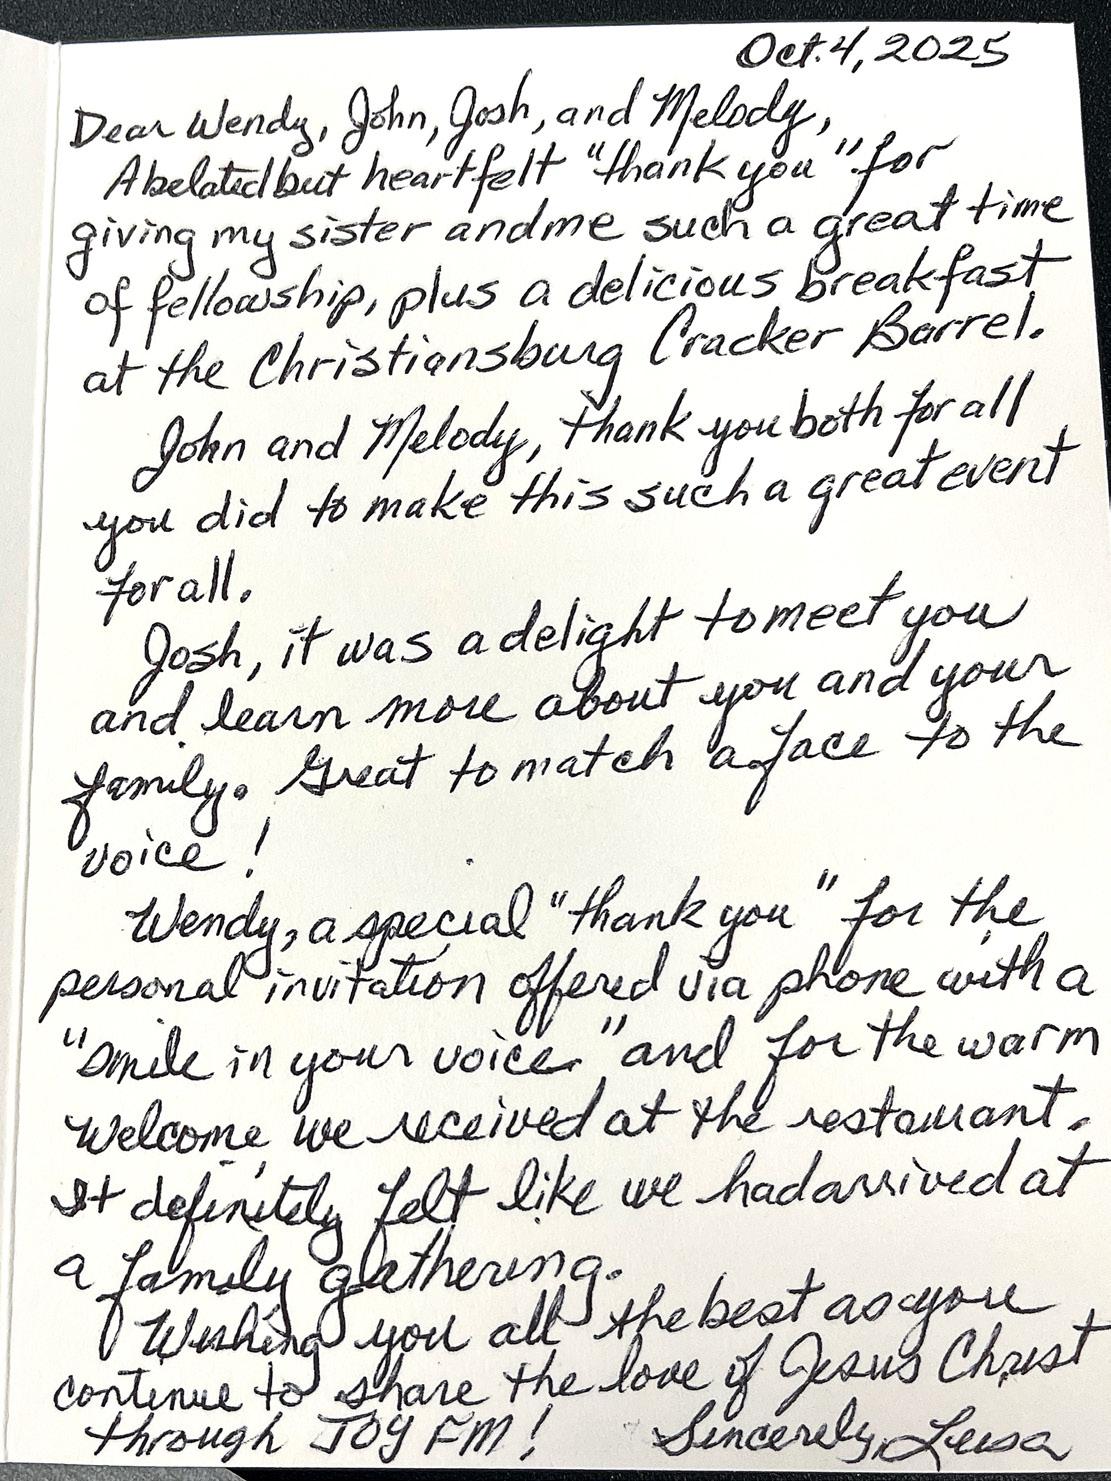 Oct. 4, 2025
Dear Wendy, John, Josh, and Melody,
A belated but heartfelt "thank you" for
giving my sister and me such a great time
of fellowship, plus a delicious breakfast
at the Christiansburg Cracker Barrel.
John and Melody, thank you both for all
you did to make this such a great event
for all.
Josh, it was a delight to meet you
and learn more about you and your
family. Great to match a face to the
voice!
Wendy, a special "thank you" for the
personal invitation offered via phone with a
"smile in your voice." and for the warm
welcome we received at the restaurant.
It definitely felt like we had arrived at
a family gathering.
Wishing you all the best as you
continue to share the love of Jesus Christ
through JOY FM! Sincerely, Luisa